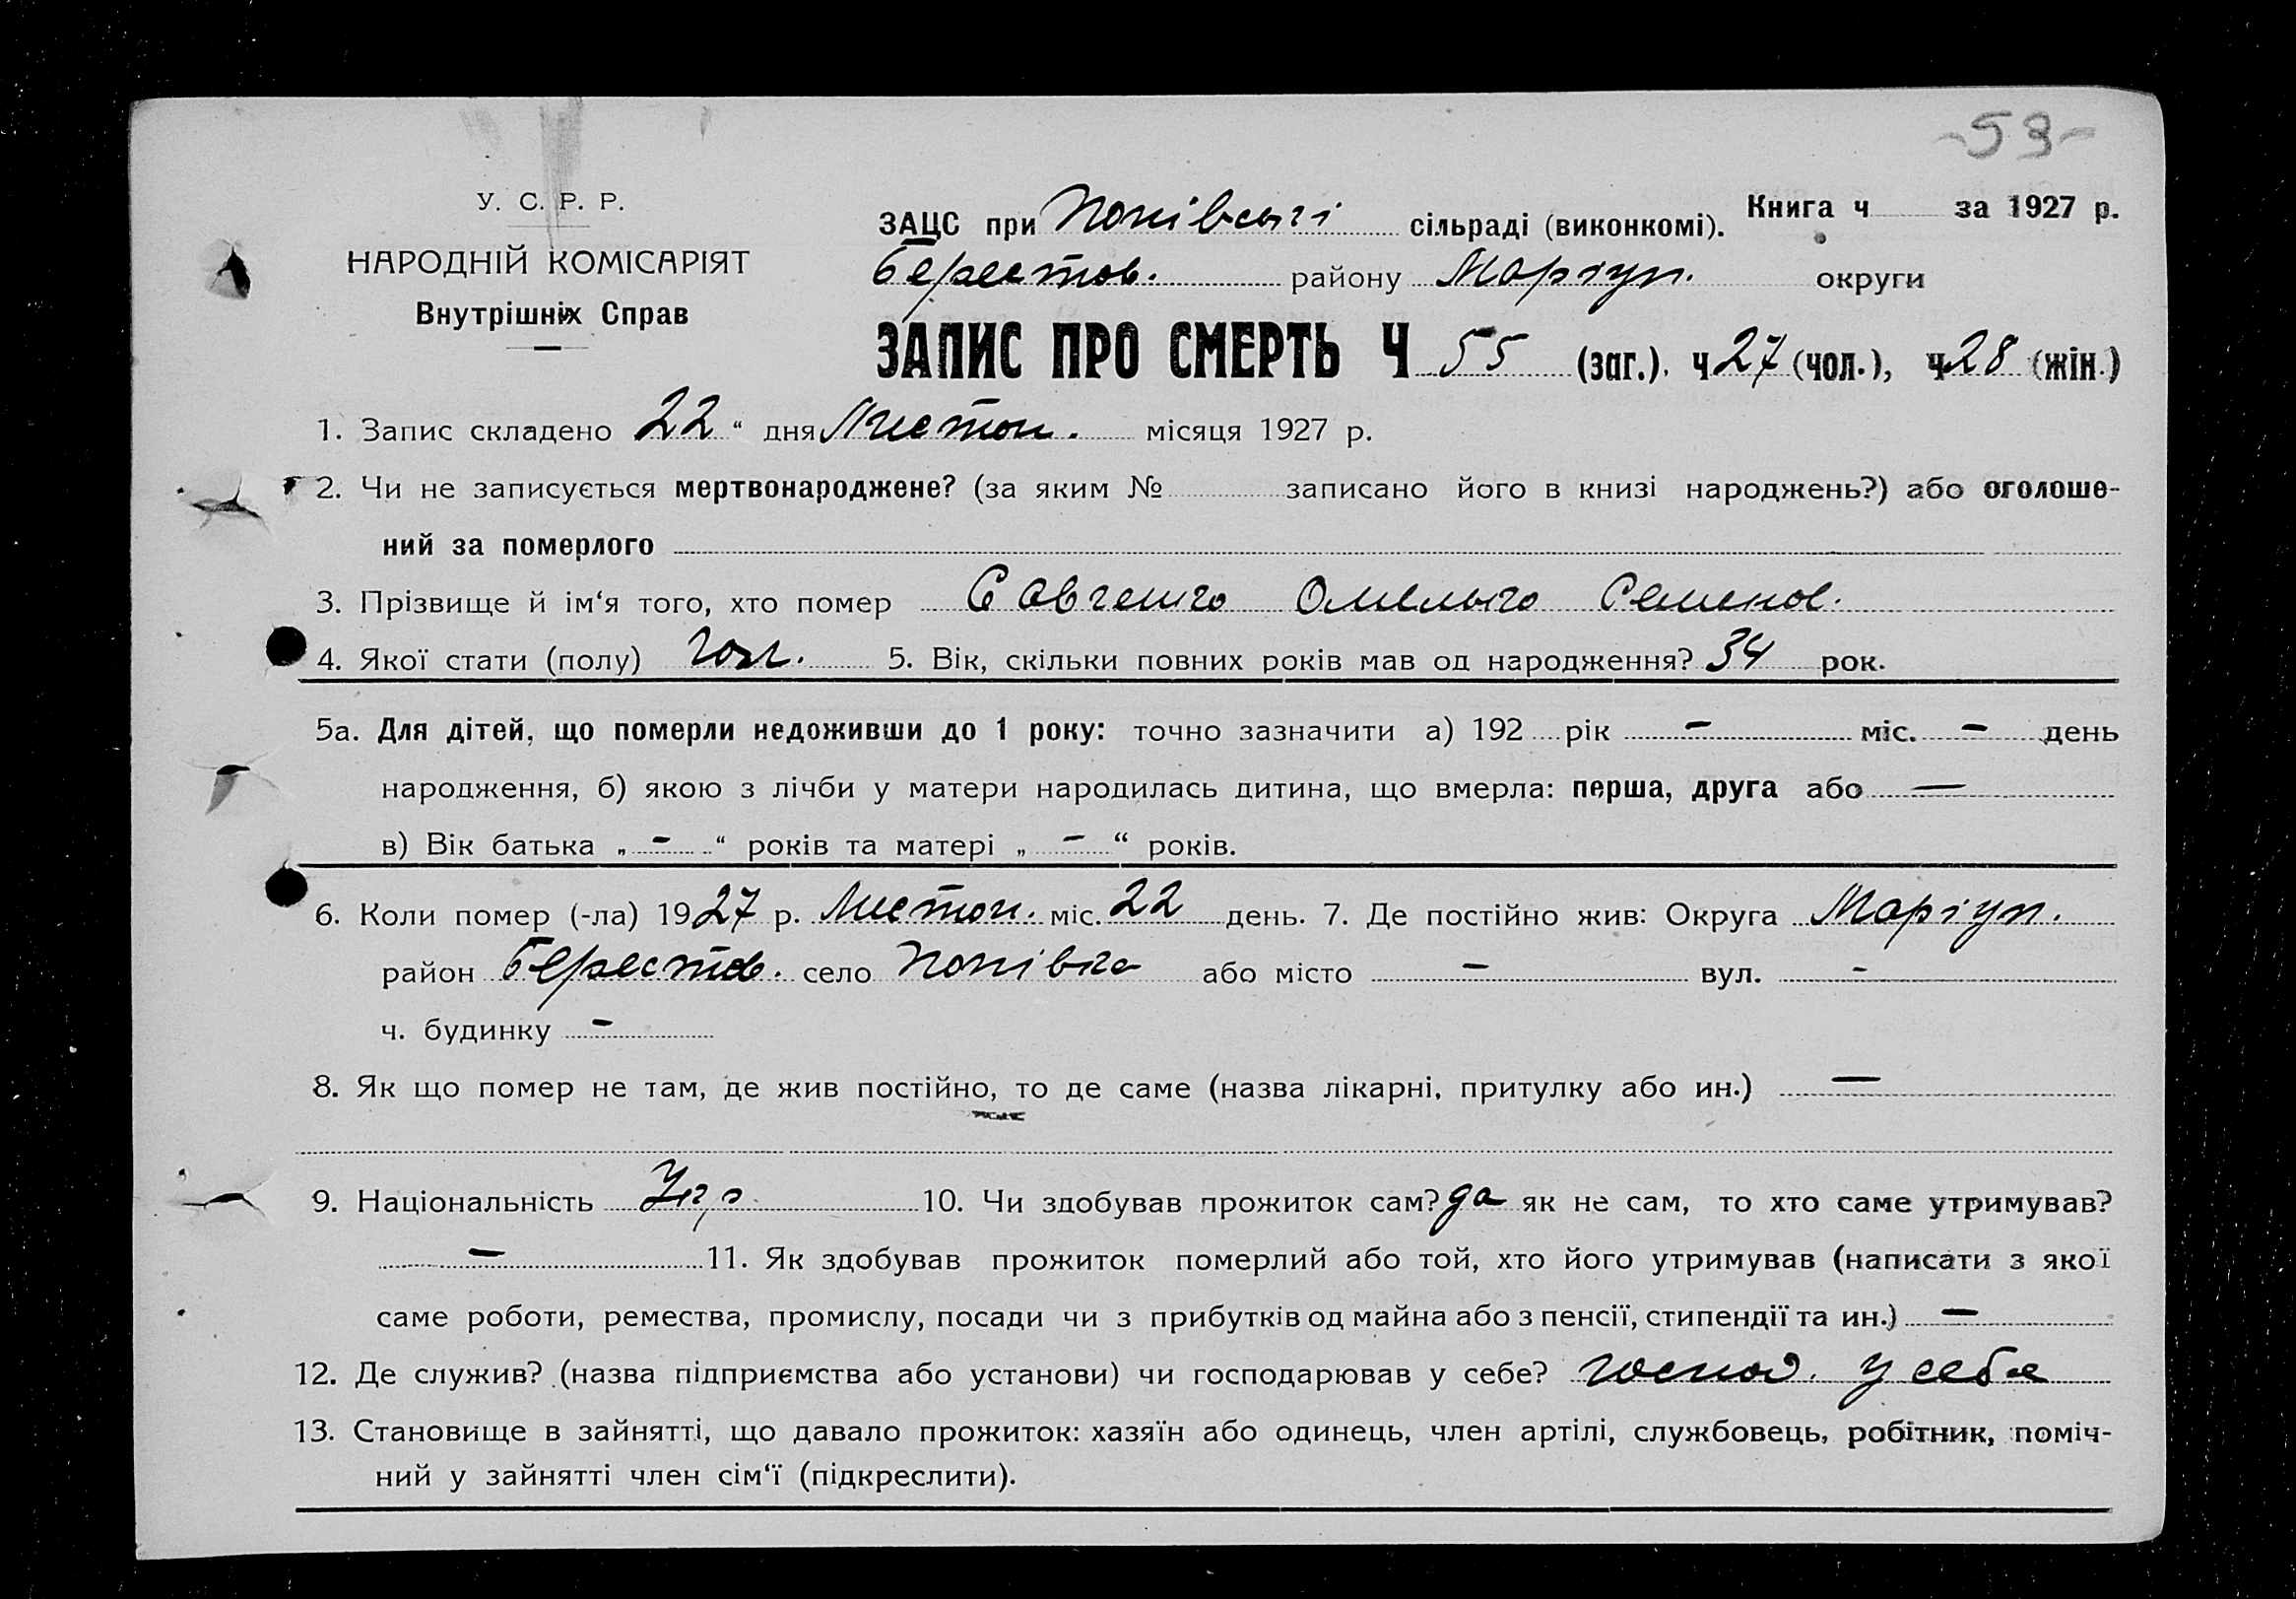 -53-
У. С. Р. Р.
НАРОДНІЙ КОМІСАРІЯТ
Внутрішніх Справ
ЗАЦС при Попівські сільраді (виконкомі). Книга ч за 1927 р.
Берестов. району Маріуп. округи
ЗАПИС ПРО СМЕРТЬ Ч 55 (заг.). ч 27 (чол.), ч 28 (жін.)
1. Запис складено 22 “ дня Листоп. місяця 1927 р.
2. Чи не записується мертвонароджене? (за яким № записано його в книзі народжень?) або оголоше-
ний за померлого
3. Прізвище й ім‘я того, хто помер Савченко Омелько Семенов.
4. Якої стати (полу) чол. 5. Вік, скільки повних років мав од народження? 34 рок.
5а. Для дітей, що померли недоживши до 1 року: точно зазначити а) 192 рік – міс. – день
народження, б) якою з лічби у матери народилась дитина, що вмерла: перша, друга або —
в) Вік батька „ – “ років та матері „ – “ років.
6. Коли помер (-ла) 1927 р. Листоп. міс. 22 день. 7. Де постійно жив: Округа Маріуп.
район Берестов. село Попівка або місто – вул. –
ч. будинку –
8. Як що помер не там, де жив постійно, то де саме (назва лікарні, притулку або ин.) —
9. Національність Укр. 10. Чи здобував прожиток сам? да як не сам, то хто саме утримував?
— 11. Як здобував прожиток померлий або той, хто його утримував (написати з якої
саме роботи, ремества, промислу, посади чи з прибутків од майна або з пенсії, стипендії та ин.) —
12. Де служив? (назва підприємства або установи) чи господарював у себе? господ. у себе
13. Становище в зайнятті, що давало прожиток: хазяїн або одинець, член артілі, службовець, робітник, поміч-
ний у зайнятті член сім‘ї (підкреслити).